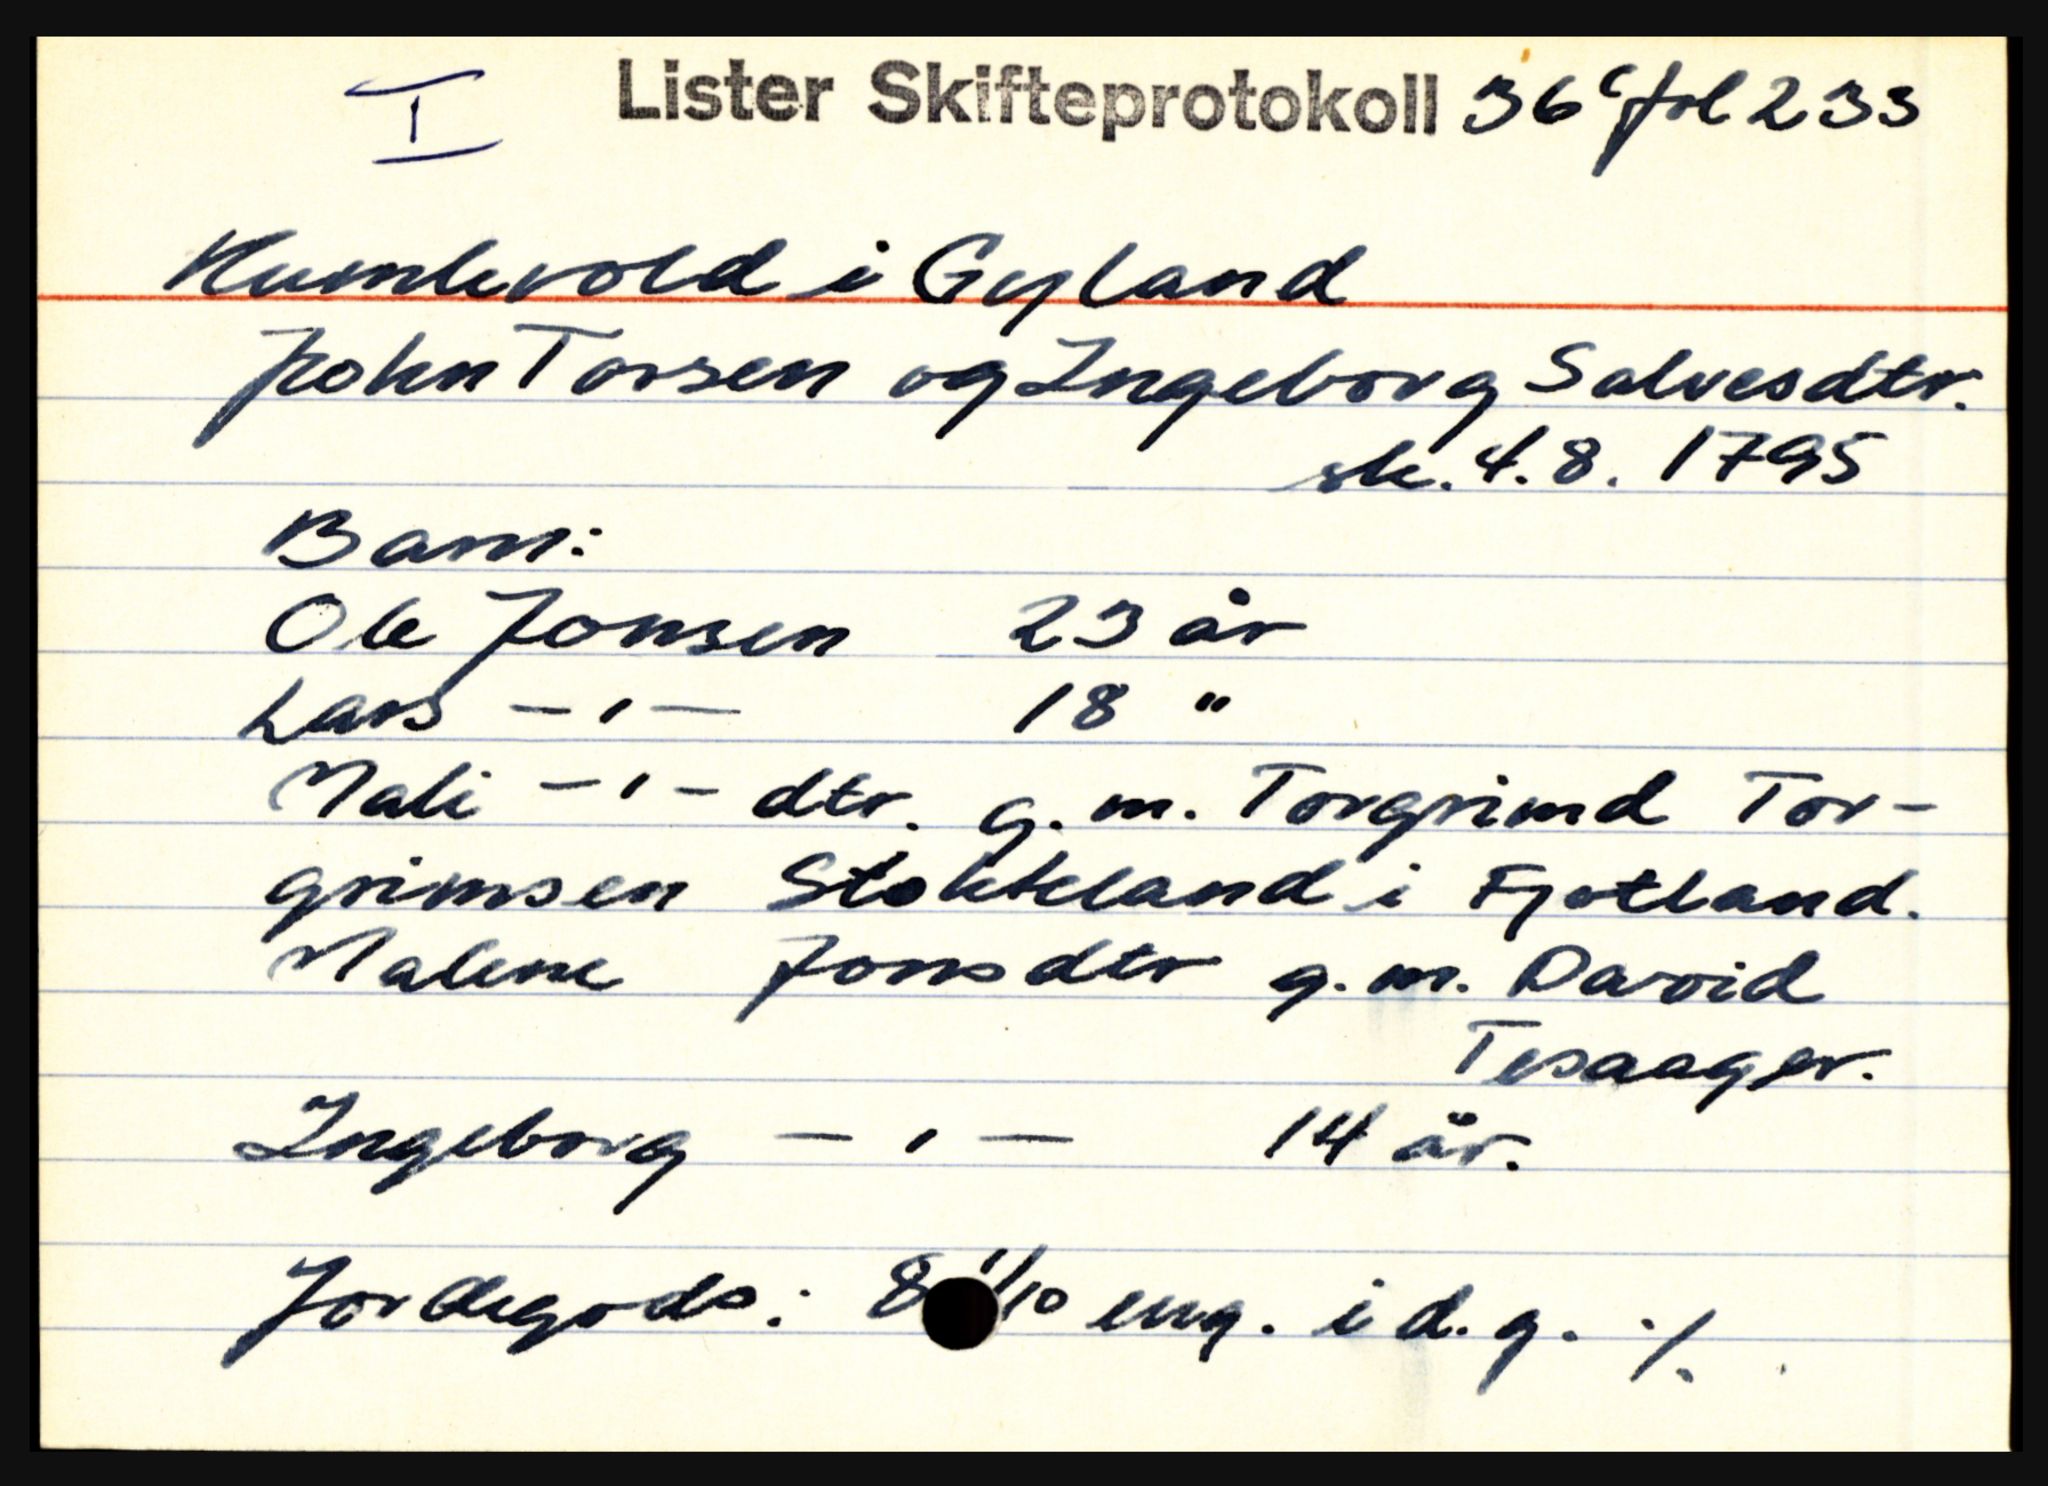 I Lister Skifteprotokoll 36c fol 233
Kumlevold i Gyland
John Torsen og Ingeborg Salvesdtr.
sk. 4.8. 1795
Barn:
Ole Jonsen 23 år
Lars -"- 18 "
Mali -"- dtr. g.m. Torgrimd Tor-
grimsen Stokkeland i Fjotland.
Malene Jonsdtr g.m. David
Tesaager.
Ingeborg -"- 14 år.
Jordegods: 8 1/10 eng. i d. g. ./.